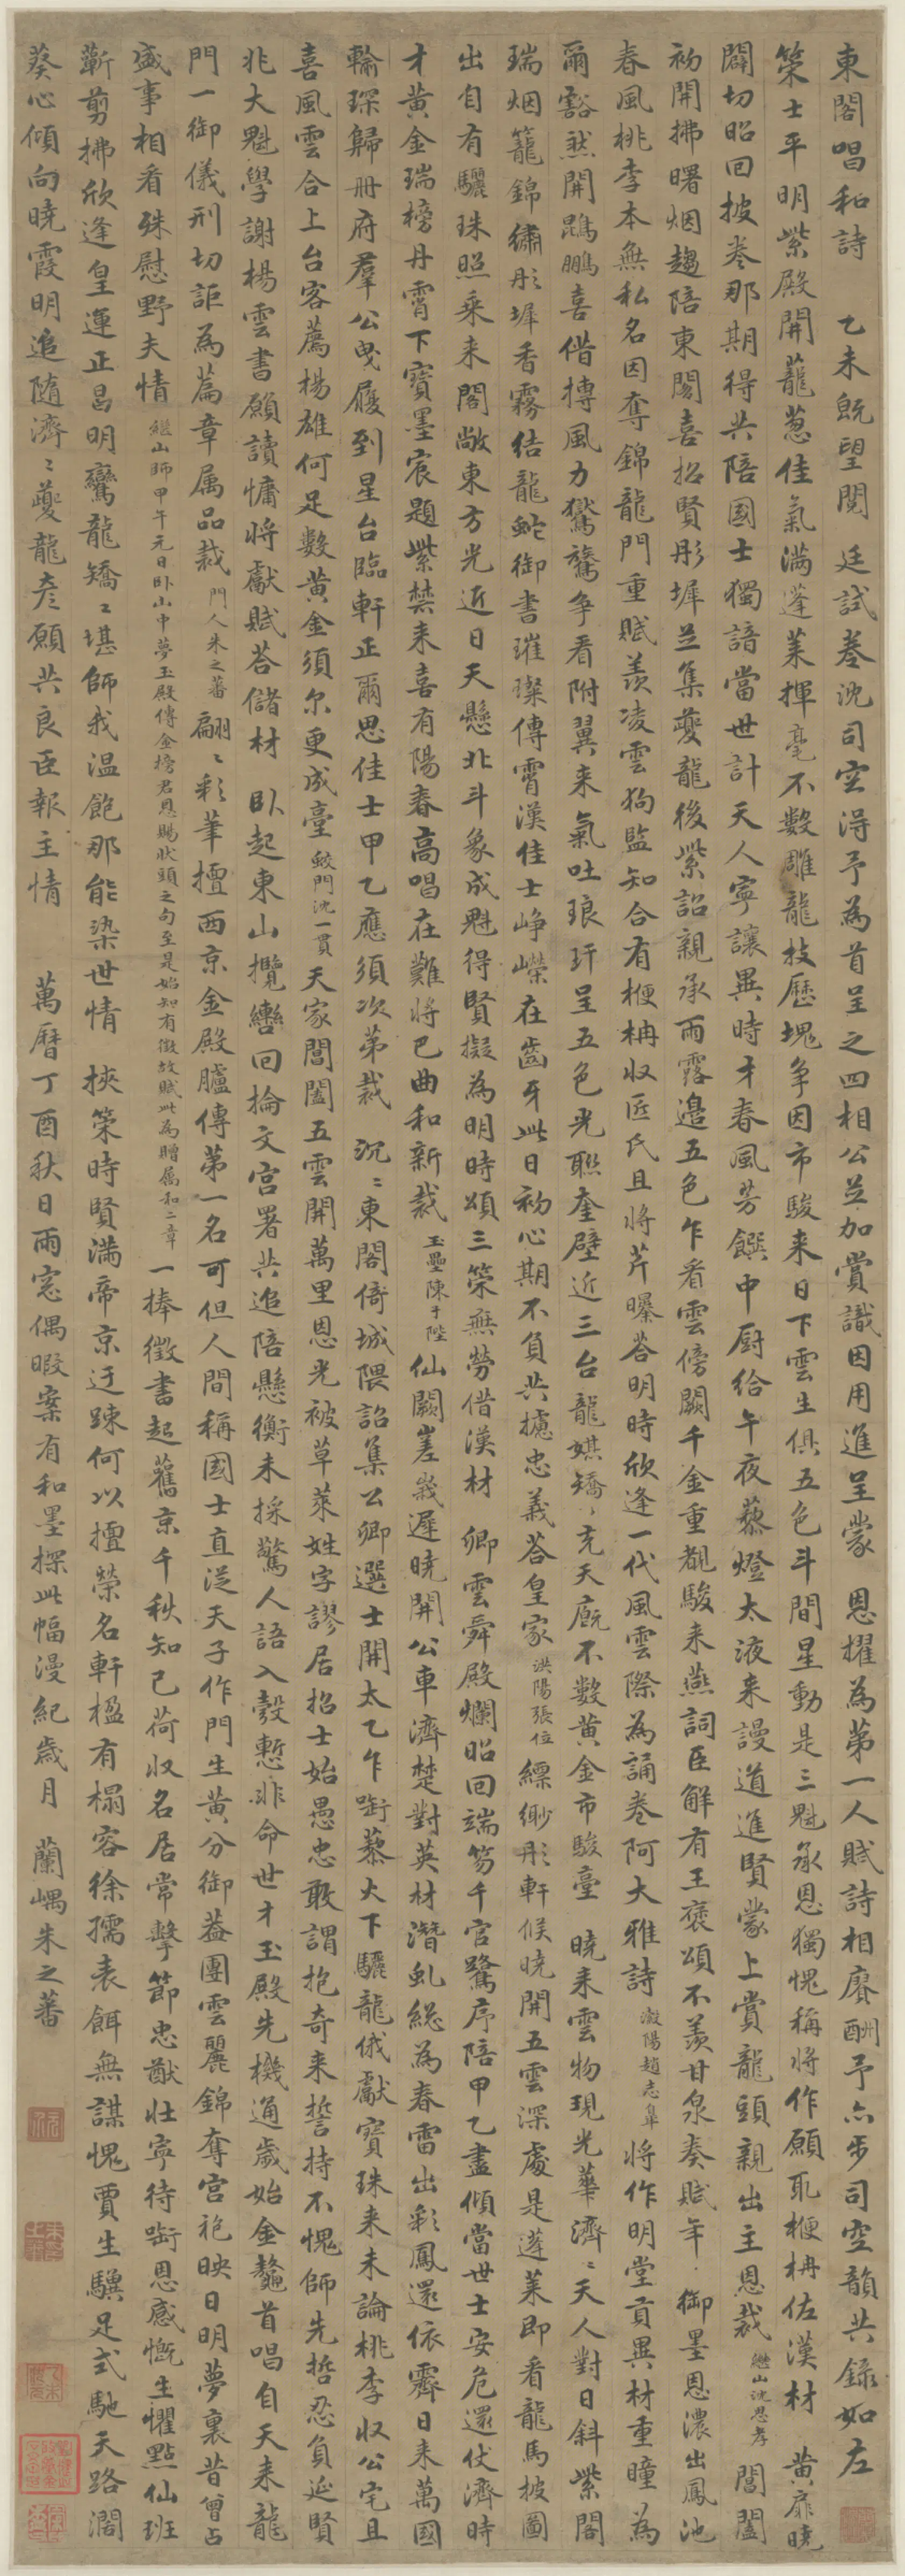 東閣唱和詩 乙未既望閱 廷試卷沈司空得予為首呈之四相公並加賞識因用進呈蒙 恩擢為第一人賦詩相賡酬予亦步司空韻共錄如左
策士平明紫殿開蘢蔥佳氣滿蓬萊揮毫不數雕龍技歷塊爭因市駿來日下雲生俱五色斗間星動是三魁承恩獨愧稱將作願取楩柟佐漢材 黃扉曉
闢切昭回披卷那期得共陪國士獨諳當世計天人寧讓異時才春風芳饌中厨給午夜藜燈太液來謾道進賢蒙上賞龍頭親出主恩裁 繼山沈思孝 閶闔
初開拂曙烟趨陪東閣喜招賢彤墀並集夔龍後紫詔親承雨露邊五色乍看雲傍闕千金重覩駿來燕詞臣解有王褒頌不羨甘泉奏賦年 御墨恩濃出鳳池
春風桃李本無私名因奪錦龍門重賦羨凌雲狗監知合有楩柟收匠氏且將芹曝荅明時欣逢一代風雲際為誦卷阿大雅詩 瀔陽趙志皐 將作明堂貢異材重瞳為
爾豁然開鵾鵬喜借摶風力鸑鷟爭看附翼來氣吐琅玕呈五色光聯奎璧近三台龍媒矯矯充天廐不數黃金市駿臺 曉來雲物現光華濟濟天人對日斜紫閣
瑞烟籠錦繡彤墀香霧結龍蛇御書璀璨傳霄漢佳士崢嶸在齒牙此日初心期不負共攄忠義荅皇家 洪陽張位 縹緲彤軒候曉開五雲深處是蓬萊即看龍馬披圖
出自有驪珠照乘來閣敞東方光近日天懸北斗象成魁得賢擬為明時頌三策無勞借漢材 卿雲舜殿爛昭回端笏千官鷺序陪甲乙盡傾當世士安危還伏濟時
才黃金瑞榜丹霄下寶墨宸題紫禁來喜有陽春高唱在難將巴曲和新裁 玉壘陳于陛 仙闕嵳峩遲曉開公車濟楚對英材潛虬総為春雷出彩鳳還依霽日來萬國
輸琛歸冊府羣公曳履到星台臨軒正爾思佳士甲乙應須次第裁 沉沉東閣倚城隈詔集公卿選士開太乙乍㘅藜火下驪龍俄獻寶珠來未論桃李收公宅且
喜風雲合上台客薦楊雄何足數黃金須尔更成臺 蛟門沈一貫 天家閶闔五雲開萬里恩光被草萊姓字謬居招士始愚忠敢謂抱奇來誓持不愧師先哲忍負延賢
兆大魁學謝楊雲書願讀慵將獻賦荅儲材 臥起東山攬轡回掄文宮署共追陪懸衡未採驚人語入彀慙非命世才玉殿先機通歲始金鼇首唱自天來龍
門一御儀刑切詎為篇章属品裁 門人朱之蕃 翩翩彩筆擅西京金殿臚傳第一名可但人間稱國士直從天子作門生黃分御葢團雲麗錦奪宮袍映日明夢裏昔曾占
盛事相看殊慰野夫情 繼山師甲午元日卧山中夢玉殿傳金榜君恩賜狀頭之句至是始知有徵故賦此為贈属和二章 一捧徵書起舊京千秋知己荷収名居常擊節忠猷壯寧待㘅恩感慨生懼點仙班
蘄剪拂欣逢皇運正昌明鸞龍矯矯堪師我温飽那能染世情 挾策時賢滿帝京迂踈何以擅榮名軒楹有榻容徐孺表餌無謀愧賈生驥足式馳天路濶
葵心傾向曉霞明追隨濟濟夔龍彥願共良臣報主情 萬曆丁酉秋日雨窓偶暇案有和墨探此幅漫紀歲月 蘭嵎朱之蕃